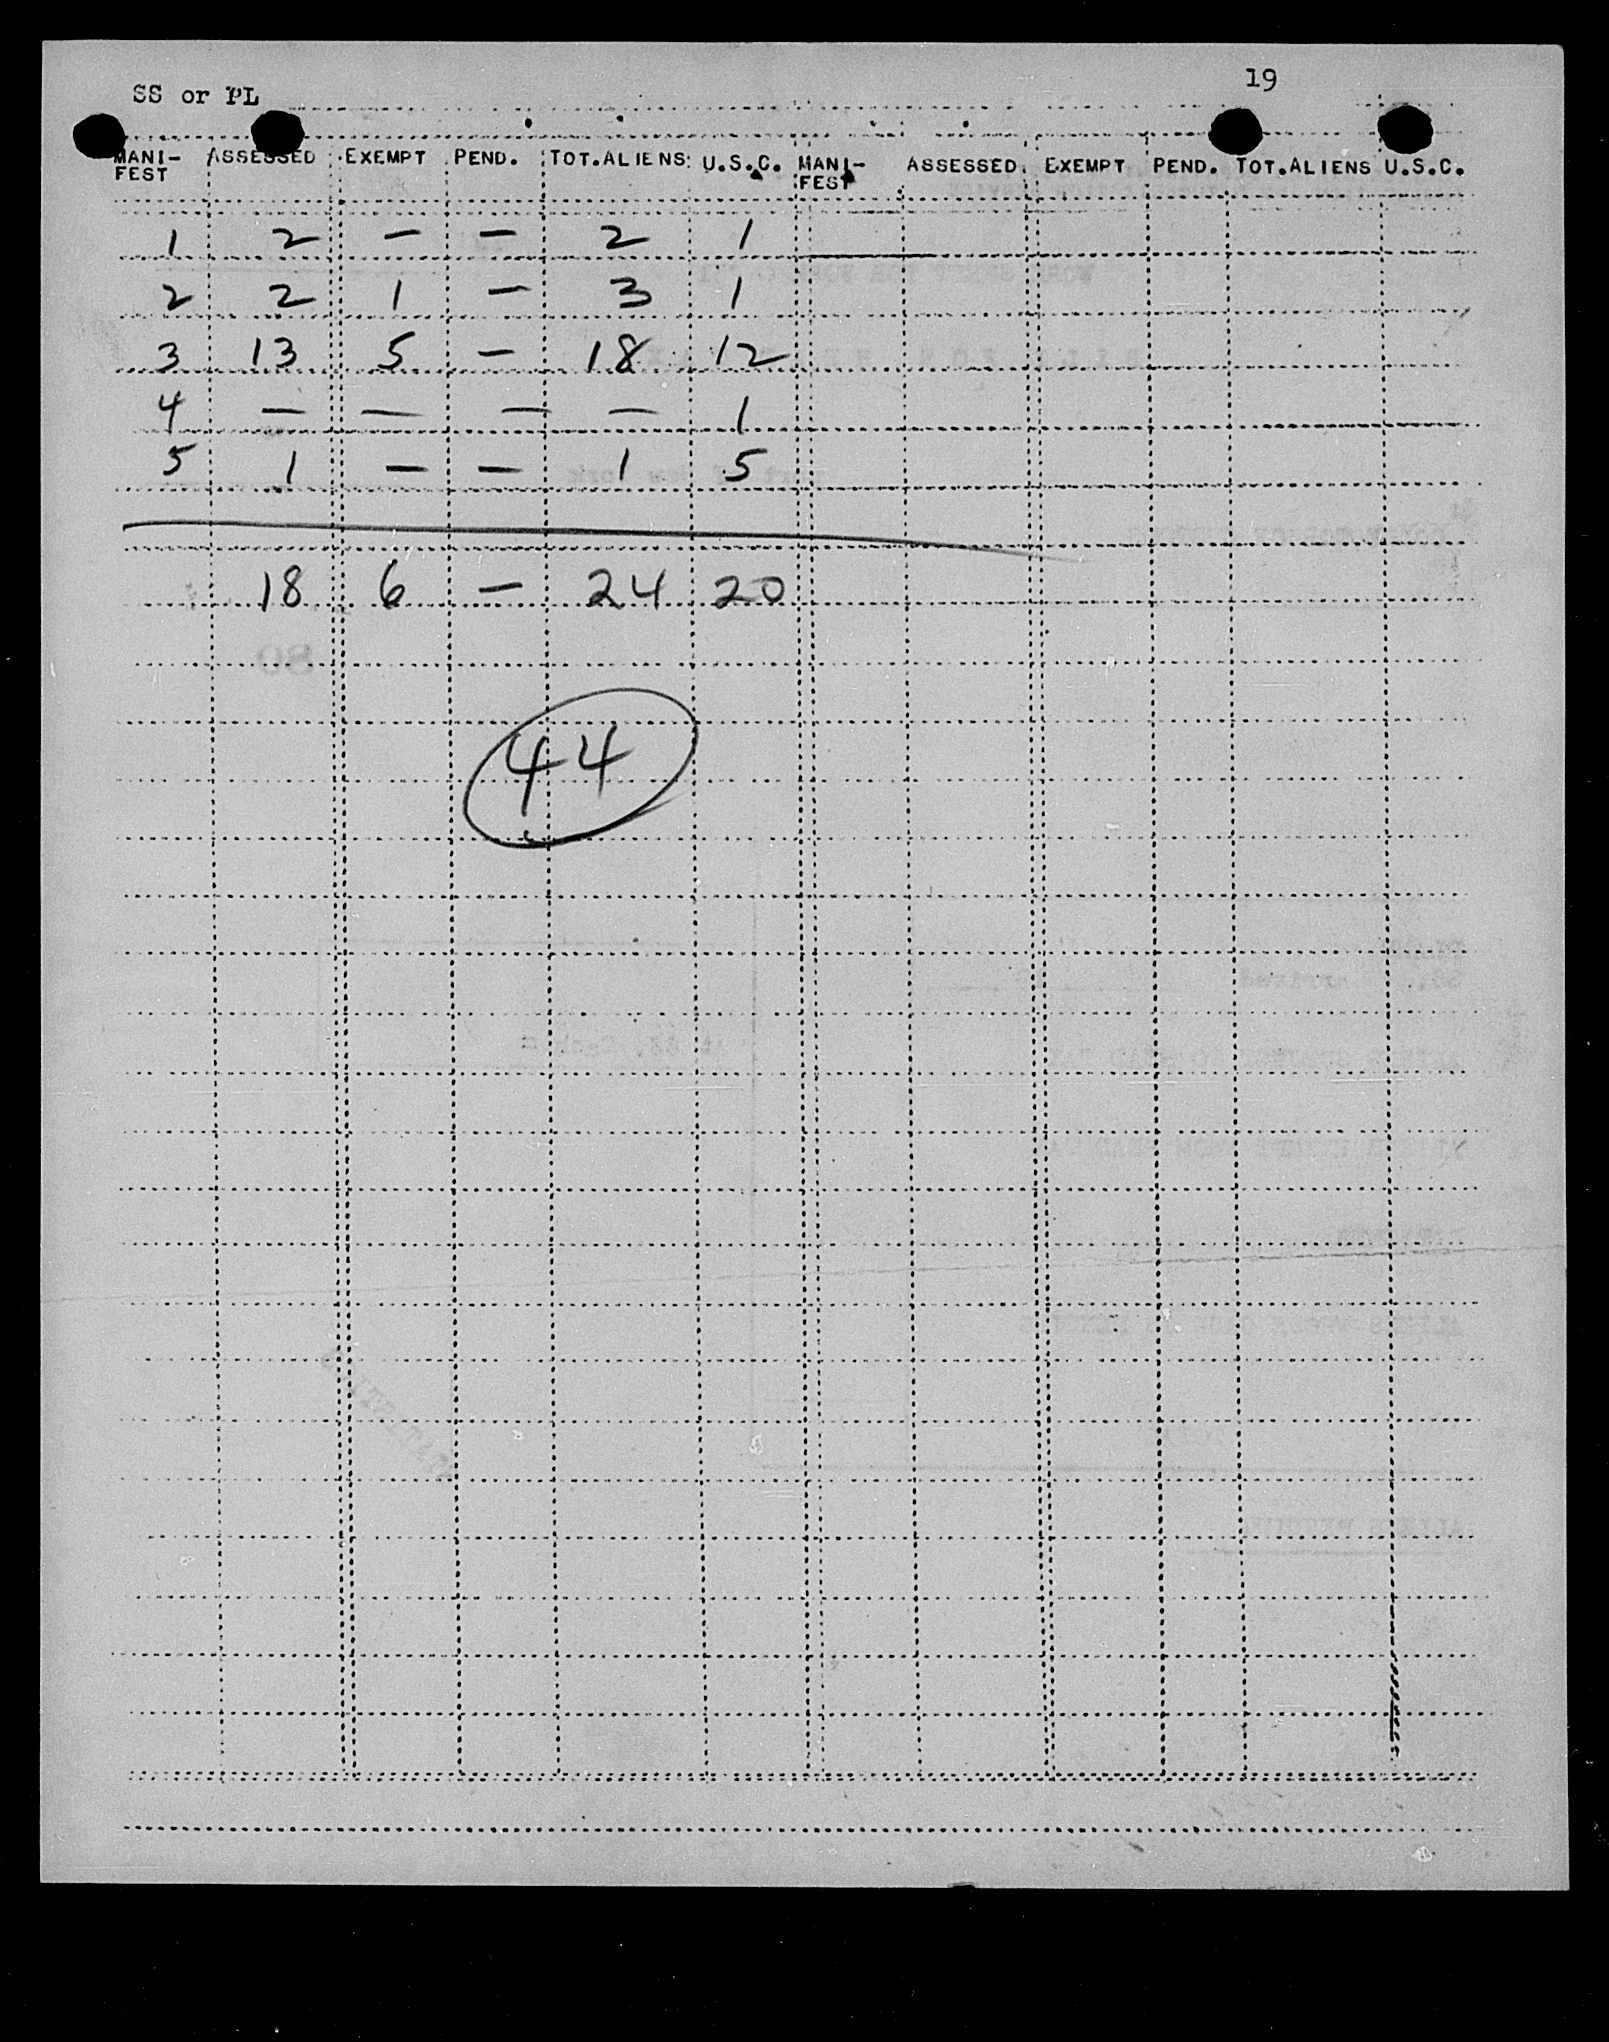 SS or PL 19
MANI-FEST ASSESSED EXEMPT PEND. TOT.ALIENS U.S.C. MANI-FEST ASSESSED EXEMPT PEND. TOT.ALIENS U.S.C.
1 2 — — 2 1
2 2 1 — 3 1
3 13 5 — 18 12
4 — — — — 1
5 1 — — 1 5
18 6 — 24 20
44